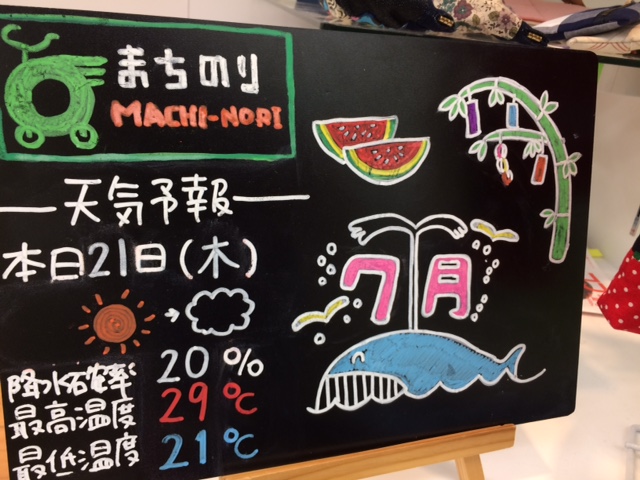 まちのり
MACHI-NORI
天気予報
本日21日(木)
降水確率 20%
最高温度 29℃
最低温度 21℃
7月